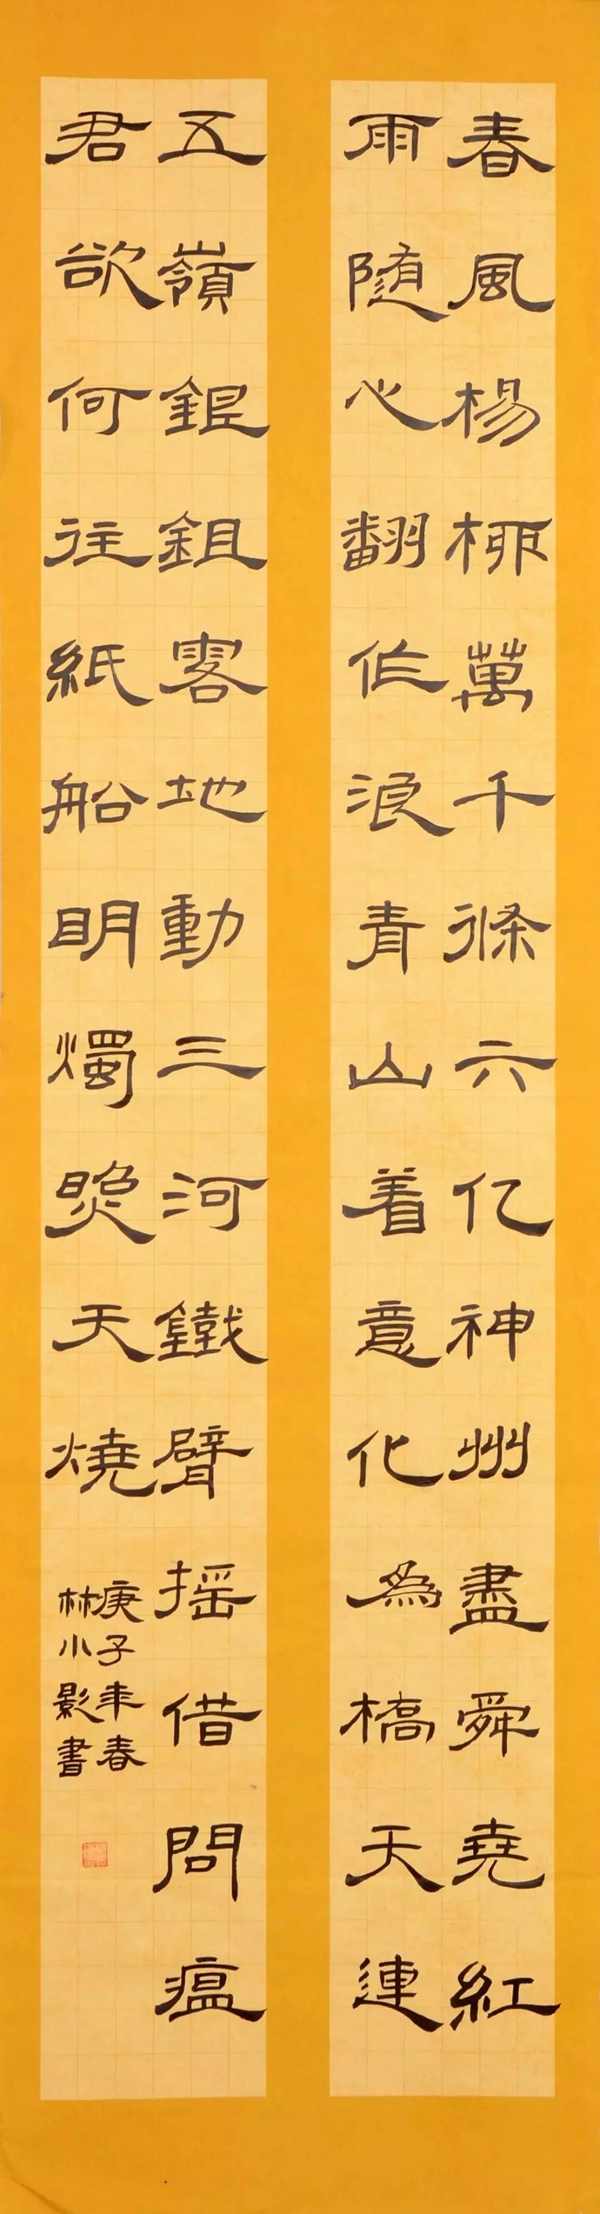 春風楊柳萬千條六亿神州盡舜堯紅
雨随心翻作浪青山着意化為橋天連
五嶺銀鉏䨣地動三河鐵臂摇借問瘟
君欲何往紙船明燭照天燒
庚子年春
林小影書